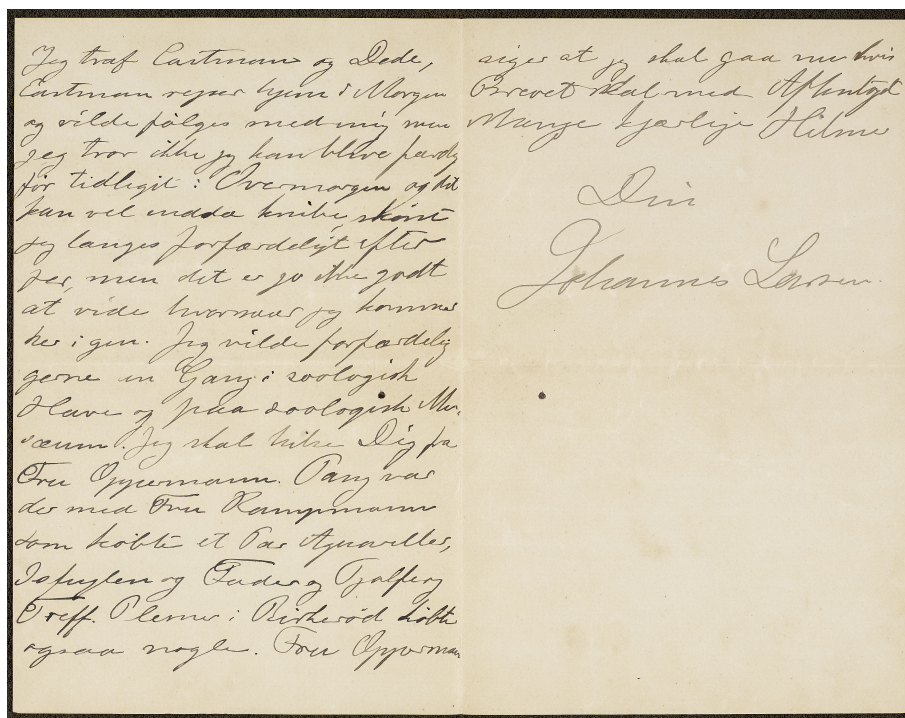 Jeg traf Eastman og Dede,
Eastman rejser hjem i Morgen
og vilde følges med mig men
jeg tror ikke jeg kan blive færdig
før tidligst i Overmorgen og det
kan vel endda knibe, skønt
jeg længes forfærdeligt efter
jer, men det er jo ikke godt
at vide hvornaar jeg kommer
her igen. Jeg vilde forfærdelig
gerne en Gang i zoologisk
Have og paa zoologisk Mu-
sæum. Jeg skal hilse Dig fra
Fru Oppermann. Pang var
der med Fru Kampmann
som købte et Par Aquareller,
Isfuglen og Tjalfe og
Treff. Plesner i Birkerød købte
ogsaa nogle. Fru Opperman
siger at jeg skal gaa nu hvis
Brevet skal med Aftentoget
Mange kjærlige Hilsner
Din
Johannes Larsen.